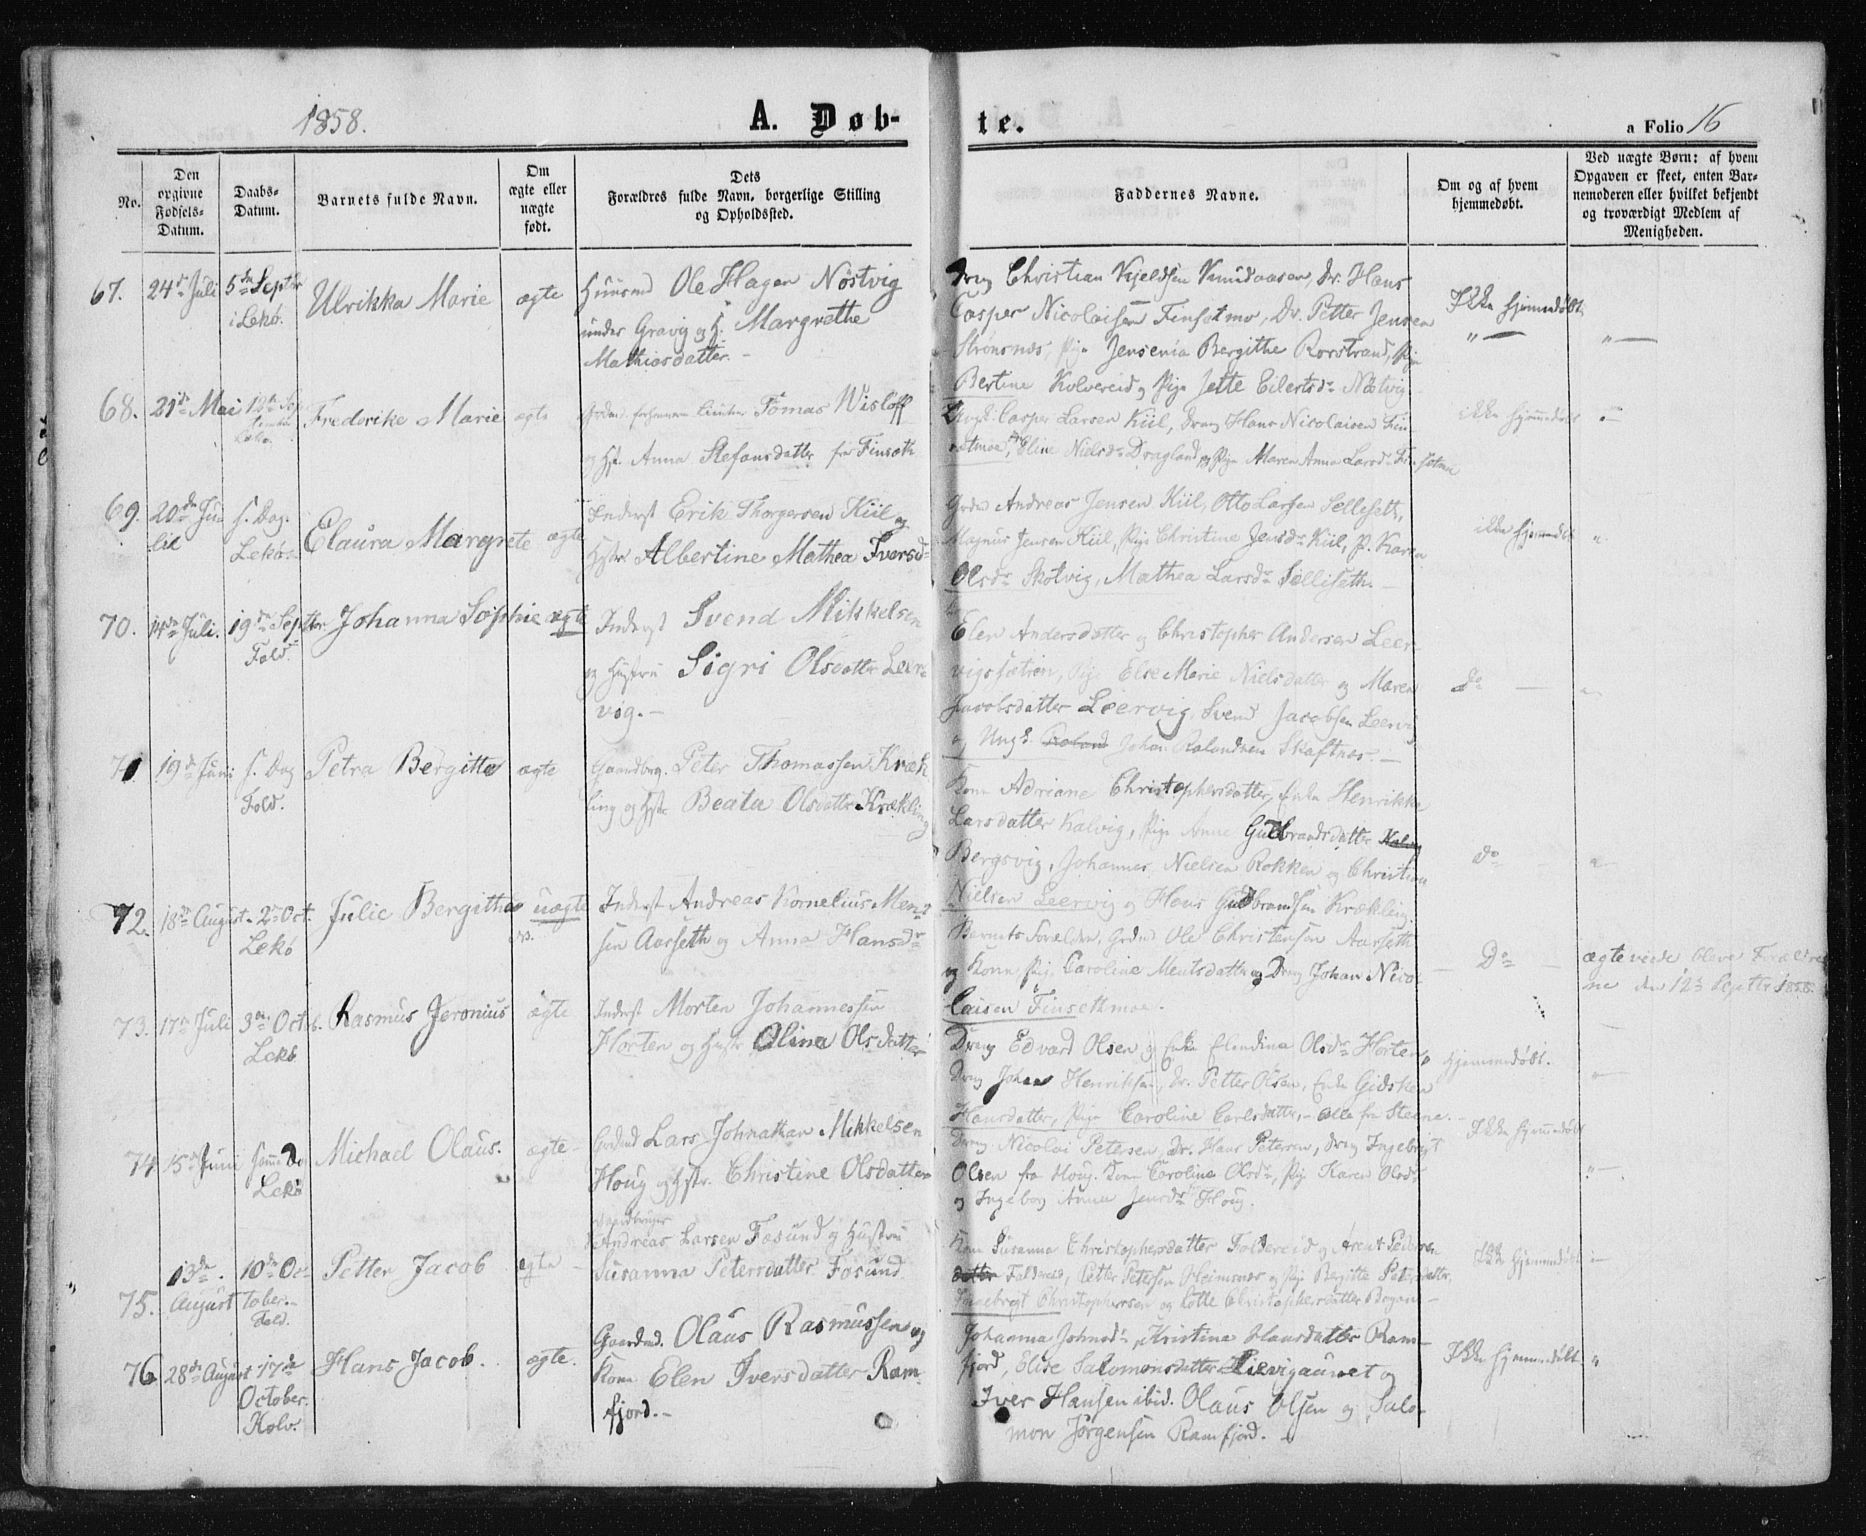 1858.
A. Døb-
te.
a Folio 16
No.
Den opgivne Fødsels-Datum.
Daabs-Datum.
Barnets fulde Navn.
Om ægte eller uægte født.
Dets Forældres fulde Navn, borgerlige Stilling og Opholdssted.
Faddernes Navne.
Om og af hvem hjemmedøbt.
Ved uægte Børn: af hvem Opgaven er skeet, enten Barnemoderen eller hvilket bekjendt og troværdigt Medlem af Menigheden.
67. 24de Juli 5te Septbr i Lekø. Ulrikka Marie ægte
Huusmd Ole Hagen Nöstvig
under Gravig og H. Margrethe
Mathiasdatter. -
Dreng Christian Kjeldsen, Dr. Hans
Casper Nicolaisen Finsetmo, Dr. Petter Jensen
Strönsnes, Pige Jensenia Bergithe Rorstrand, Pige
Bertine Kolvereid og Pige Jette Eilertsdr Nöstvig
Ikke hjemmedøbt
68. 21de Mai 12te Sep- Lekø. Frederike Marie ægte
Tomas Wisløff
og Hst. Anna Stefansdatter fra Finseth
Ungk. Casper Larsen Kiil, Dreng Hans Nicolaisen Fin-
setmoe, Eline Nielsdr Dragland og Pige Maren Anna Larsdr Finsetmo
ikke hjemmedøbt
69. 20de Ju- lie s. Dag. Lekø. Elaura Margrete ægte
Inderst Erik Thorgersen Kiil og
Hstr Albertine Mathea Iversdr
Grdm Andreas Jensen Kiil, Otto Larsen Selleseth,
Magnus Jensen Kiil, Pige Christine Jensdr Kiil, P. Karen
Olsdr Skotvig, Mathea Larsdr Selliseth. -
ikke hjemmedøbt
70. 14de Juli. 19de Septbr Fold. Johanna Sophie ægte
Inderst Svend Mikkelsen
og Hustru Sigri Olsdatter Leer-
vig. -
Elen Andersdatter og Christopher Andersen Leer-
vigssætren, Pige Else Marie Nielsdatter og Maren
Jacobsdatter Leervig, Svend Jacobsen Leervig
og Ungk. Roland Johan Rolandsen Skaftnes. -
Do
71 19de Juni s. Dag Fold. Petra Bergitte ægte
Gaardbrg. Peter Thomassen Kræk-
ling og Hstr Beata Olsdatter Krækling
Kone Adriane Christophersdatter, Enke Henrikke
Larsdatter Kalvig, Pige Anne Gudbrandsdatter Kalvig
Bergsvig, Johannes Nielsen Rokken og Christian
Nielsen Leervig og Hans Gudbrandsen Krækling.
do
72. 18de August. 2den Oct. Lekø Julie Bergitha uægte
Inderst Andreas Kornelius Ment-
sen Aarseth og Anna Hansdr
Barnets Forældre, Grdmd Ole Christensen Aarseth
og Kone, Pig. Caroline Mentsdatter og Dreng Johan Nico-
laisen Finsethmoe.
Do
ægteviede bleve Forældre-
ne den 12te Septbr 1858.
73. 17de Juli 3die Octob. Lekø Rasmus Jeronius ægte
Inderst Morten Johannessen
Horten og Hustr Olina Olsdatter
Dreng Edvard Olsen og Enke Elendina Olsdr Horten,
Dreng Johan Henriksen, Dr. Petter Olsen, Enke Gidsken
Hansdatter, Pige Caroline Carlsdatter, - alle fra Steene. -
hjemmedøbt.
74 15de Juni samme Dag Lekø Michael Olaus. ægte -
Grdmd Lars Johnathan Mikkelsen
Houg og Hstr. Christine Olsdatter
Dreng Nicolai Petersen, Dr. Hans Petersen, Dreng Ingebrigt
Olsen fra Houg. Kone Caroline Olsdr, Pige Karen Olsdr
og Ingeborg Anna Jensdr Houg.
Ikke hjemmedøbt
75. 13de August 10de October. - Fold. Petter Jacob ægte -
Gaardbruger
Andreas Larsen Føsund og Hustru
Susanna Petersdatter Fosund
Kone Susanna Christophersdatter Foldereid og Arent Pedersen
datter Foldereid, Petter Petersen Heimsnes og Pige Bergitte Petersdatter,
Ingebrigt Christophersen og Lotte Christophersdatter Bogen -
Ikke hjemmedøbt
76 28de August 17de October. Kolv. Hans Jacob. ægte.
Gaardmd. Olaus Rasmussen og
Kone Elen Iversdatter Ram-
fjord. -
Johanna Johnsdr, Kristina Hansdatter Ram-
fjord, Elise Salomonsdatter Lievigaunet og
Iver Hansen ibid. Olaus Olsen og Salo-
mon Jørgensen Ramfjord. -
Ikke hjemmedøbt